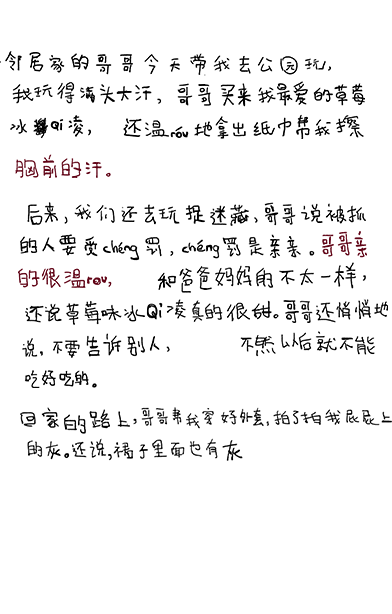 邻居家的哥哥今天带我去公园玩,
我玩得满头大汗,哥哥买来我最爱的草莓
冰Qi凌,还温róu地拿出纸巾帮我擦
胸前的汗。
后来,我们还去玩捉迷藏,哥哥说被抓
的人要受chéng罚,chéng罚是亲亲。哥哥亲
的很温rou,和爸爸妈妈的不太一样,
还说草莓味冰Qi凌真的很甜。哥哥还悄悄地
说,不要告诉别人,不然以后就不能
吃好吃的。
回家的路上,哥哥帮我穿好外套,拍了拍我屁屁上
的灰。还说,裙子里面也有灰